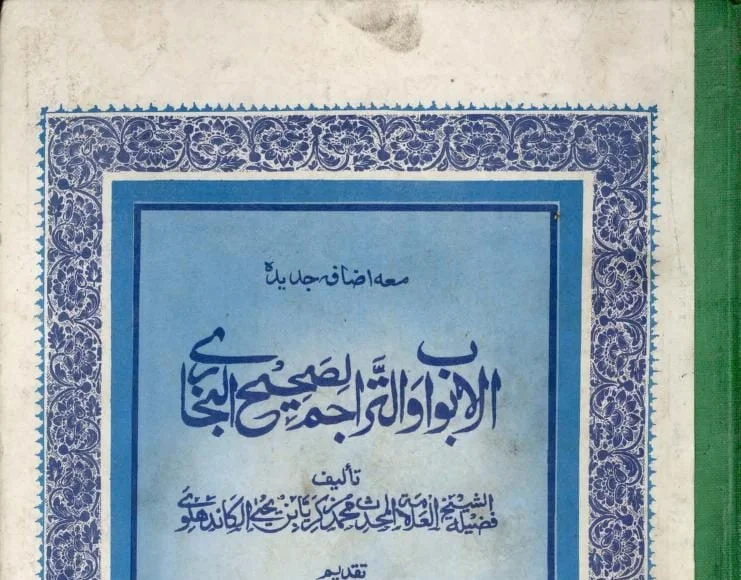 معه اضافہ جدیدہ
الابواب والتراجم لصحيح البخاري
تأليف
فضيلة الشيخ العلامة المحدث محمد زكريا بن يحيى الكاندهلوي
تقديم